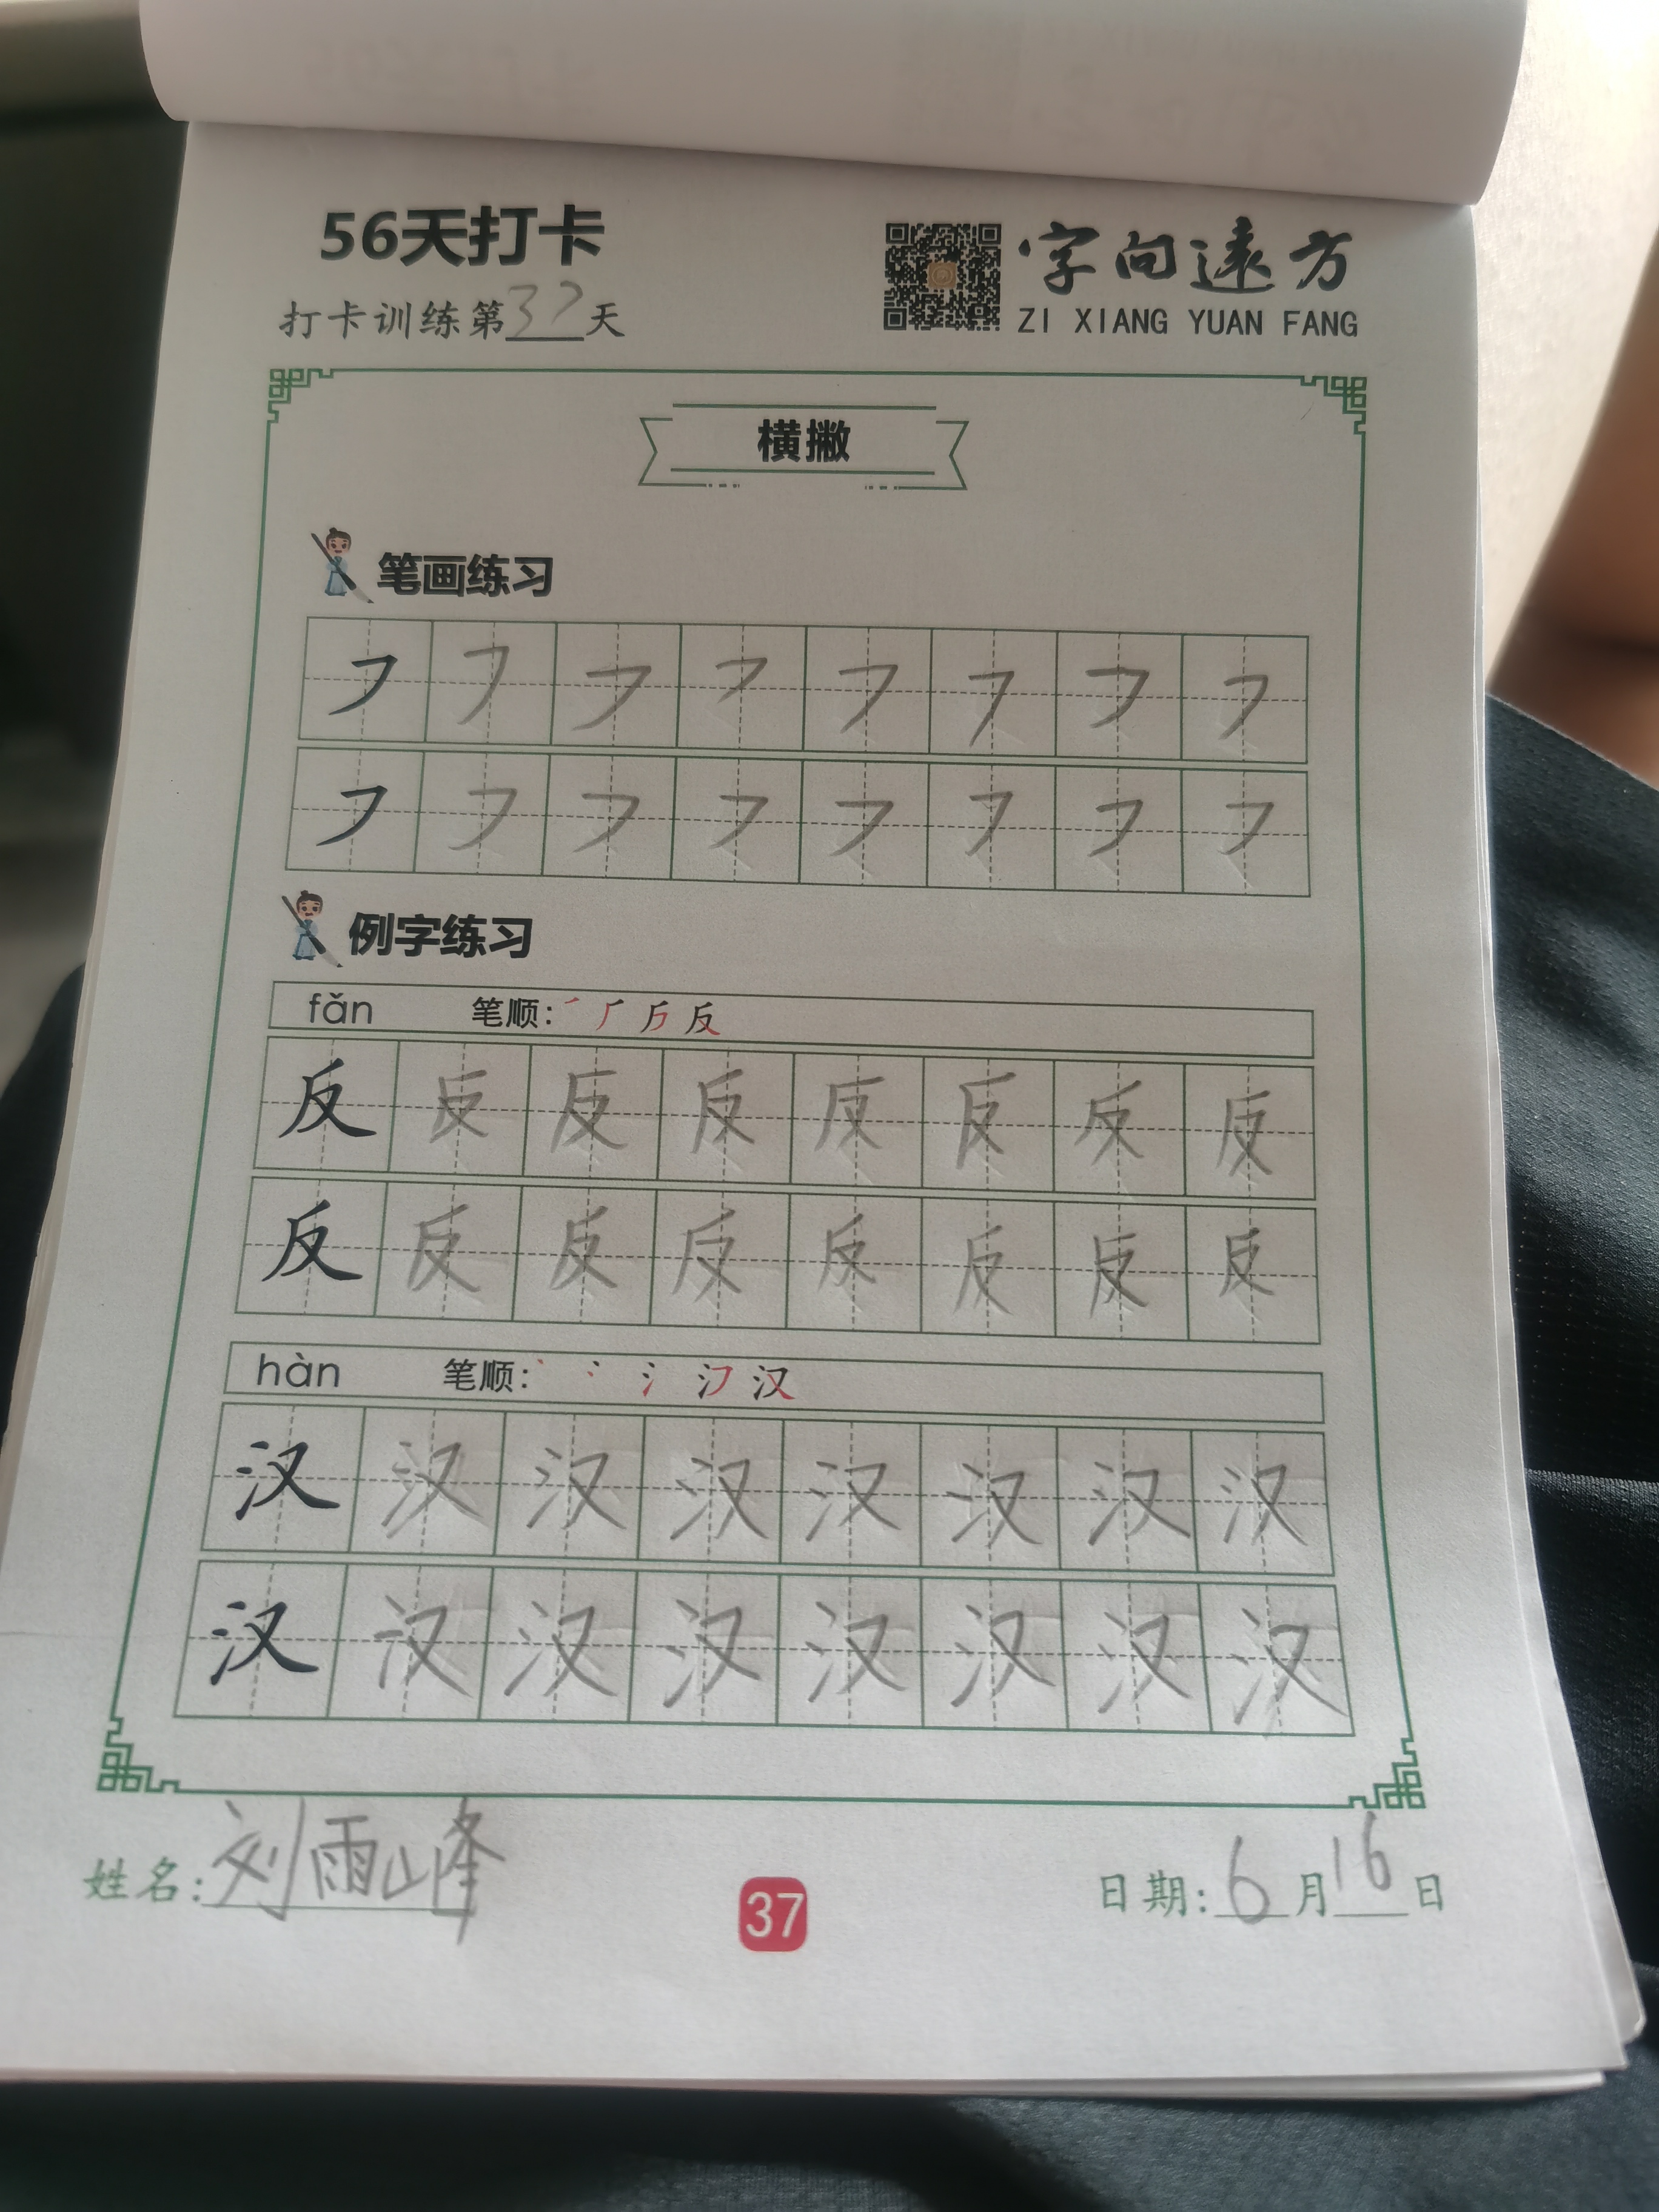 56天打卡
打卡训练第37天
字向遠方
ZI XIANG YUAN FANG
横撇
笔画练习
㇇ ㇇ ㇇ ㇇ ㇇ ㇇ ㇇ ㇇
㇇ ㇇ ㇇ ㇇ ㇇ ㇇ ㇇ ㇇
例字练习
fǎn 笔顺: 反
反 反 反 反 反 反 反 反
反 反 反 反 反 反 反 反
hàn 笔顺: 汉
汉 汉 汉 汉 汉 汉 汉 汉
汉 汉 汉 汉 汉 汉 汉 汉
姓名:刘雨峰
37
日期:6月16日